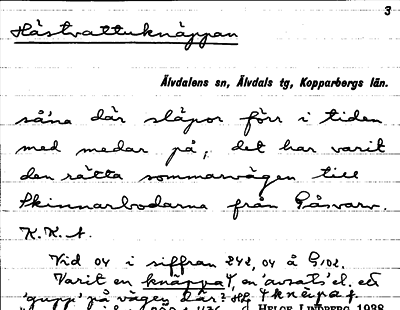 3
Hästvattuknäppan
Älvdalens sn, Älvdals tg, Kopparbergs län.
såna där släpor förr i tiden
med medar på, det har varit
den rätta sommarvägen till
Skinnarbodarna från Gåsvarv.
K.K.A.
Vid 04 i siffran 242,04 å G.
Varit en knäppa, en 'avsats' el. ett
'gupp' på vägen där? Hfl
HELGE LINDBERG 1938